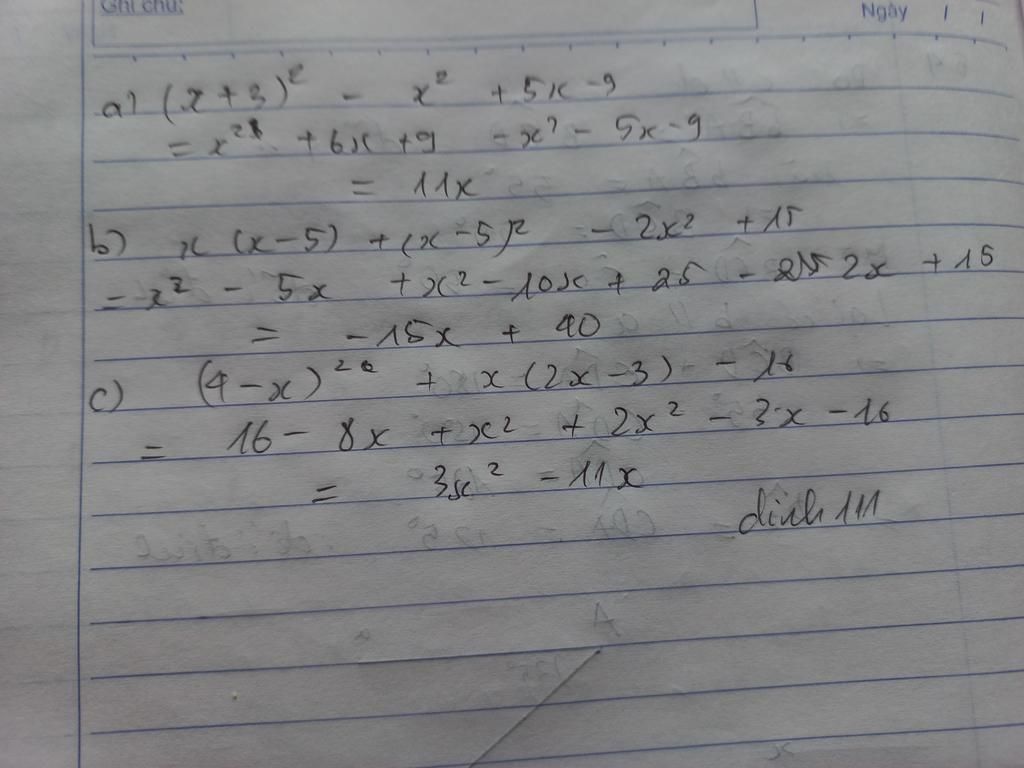 Ghi chú:
Ngày / /
a) (x + 3)² - x² + 5x - 9
= x² + 6x + 9 - x² - 5x - 9
= 11x
b) x (x - 5) + (x - 5)² - 2x² + 15
= x² - 5x + x² - 10x + 25 - 2x + 15
= -15x + 40
c) (4 - x)² + x (2x - 3) - 16
= 16 - 8x + x² + 2x² - 3x - 16
= 3x² - 11x
dinh 111